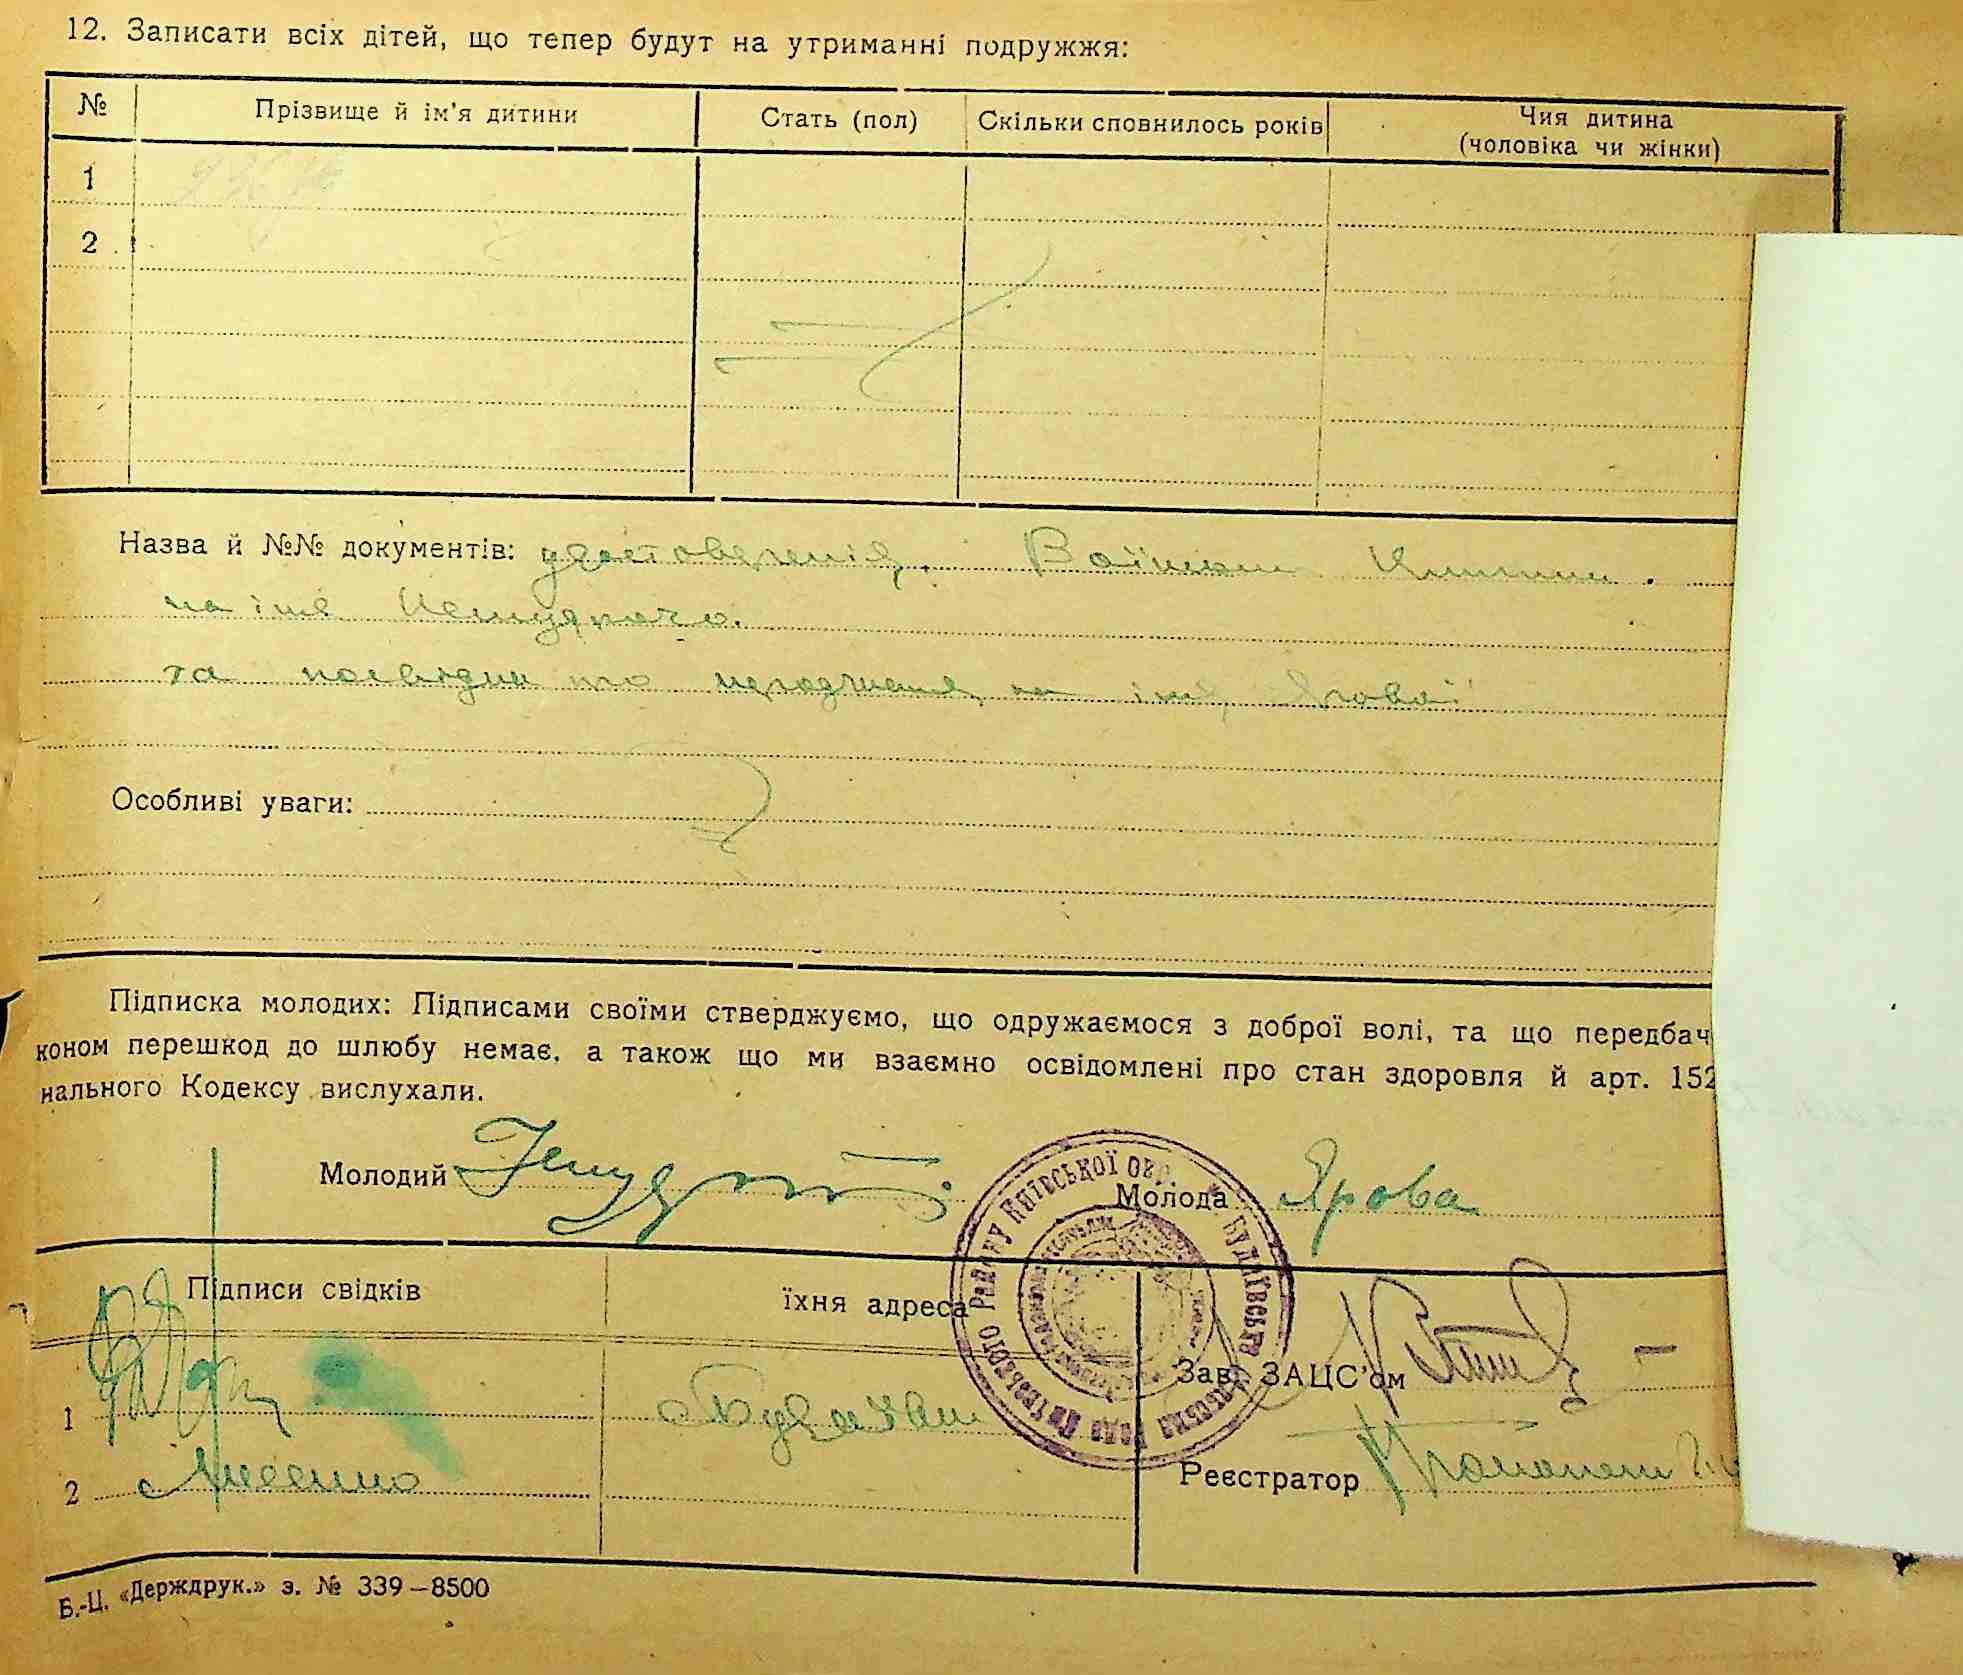 12. Записати всіх дітей, що тепер будут на утриманні подружжя:
№ Прізвище й ім'я дитини Стать (пол) Скільки сповнилось років Чия дитина
(чоловіка чи жінки)
1
2
Назва й №№ документів:
на імя
та на імя Ярової
Особливі уваги:
Підписка молодих: Підписами своїми стверджуємо, що одружаємося з доброї волі, та що передбач
коном перешкод до шлюбу немає, а також що ми взаємно освідомлені про стан здоровля й арт. 152
нального Кодексу вислухали.
Молодий Молода Ярова
Підписи свідків їхня адреса
Зав. ЗАЦС'ом
1
Реєстратор
2 Лисенко
району Київської
Б.-Ц. «Держдрук.» з. № 339–8500